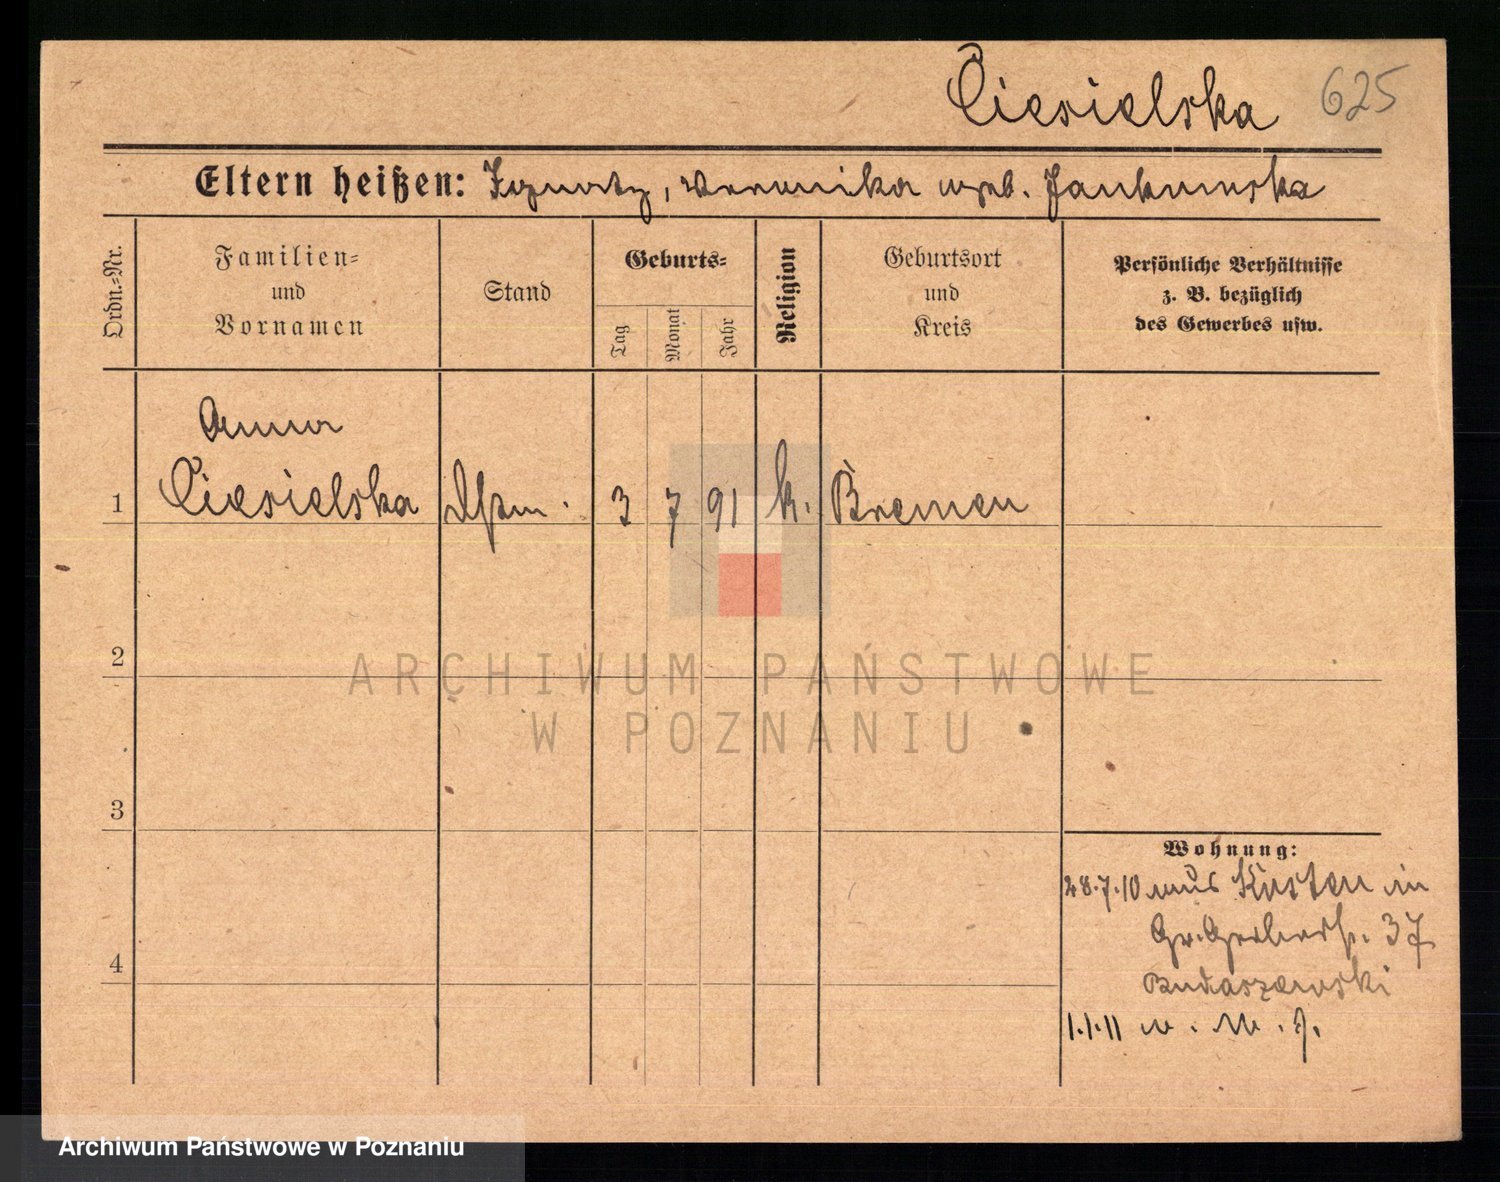 Ciesielska 625
Eltern heißen: Ignatz, Veronika geb. Jankowska
Ordn.=Nr.
Familien=
und
Vornamen
Stand
Geburts=
Tag
Monat
Jahr
Religion
Geburtsort
und
Kreis
Persönliche Verhältnisse
z. B. bezüglich
des Gewerbes usw.
Anna
1 Ciesielska 3 7 91 k. Bremen
2
3
4
Wohnung:
28.7.10 aus Kosten in
Gr. Gerberstr. 37
Budaszewski
1.1.11
ARCHIWUM PAŃSTWOWE
W POZNANIU
Archiwum Państwowe w Poznaniu